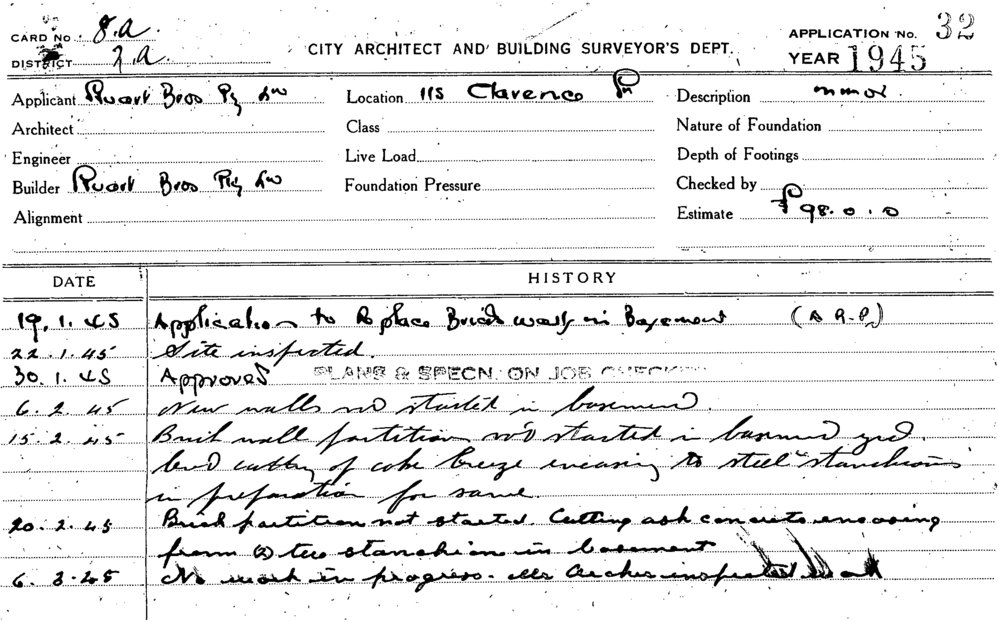 CARD No. 8.a.
DISTRICT 2.a.
CITY ARCHITECT AND BUILDING SURVEYOR'S DEPT.
APPLICATION No. 32
YEAR 1945
Applicant Stuart Bros Pty Ltd
Location 115 Clarence St
Description minor
Architect
Class
Nature of Foundation
Engineer
Live Load
Depth of Footings
Builder Stuart Bros Pty Ltd
Foundation Pressure
Checked by
Alignment
Estimate £98.0.0
DATE
HISTORY
19.1.45 Application to Replace Brick walls in Basement (A.R.P.)
22.1.45 Site inspected.
30.1.45 Approved PLANS & SPECN. ON JOB CHECKED
6.2.45 New walls not started in basement.
15.2.45 Brick wall partition not started in basement yet.
cutting of coke breeze encasing to steel stanchions
in preparation for same.
20.2.45 Brick partition not started. Cutting ash concrete encasing
from (2) two stanchions in basement
6.3.45 No work in progress. Mr Archer inspected work